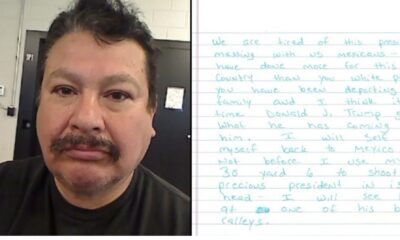 We are tired of this presi
messing with us mexicans -
have done more for this
Country than you white p
you have been deporting
family and I think it
time Donald J. Trump g
What he has coming
him. I will self
myself back to Mexico
Not before I use my
30 yard 6 to shoot
precious president in is
head - I will see
at one of his b
ralleys.